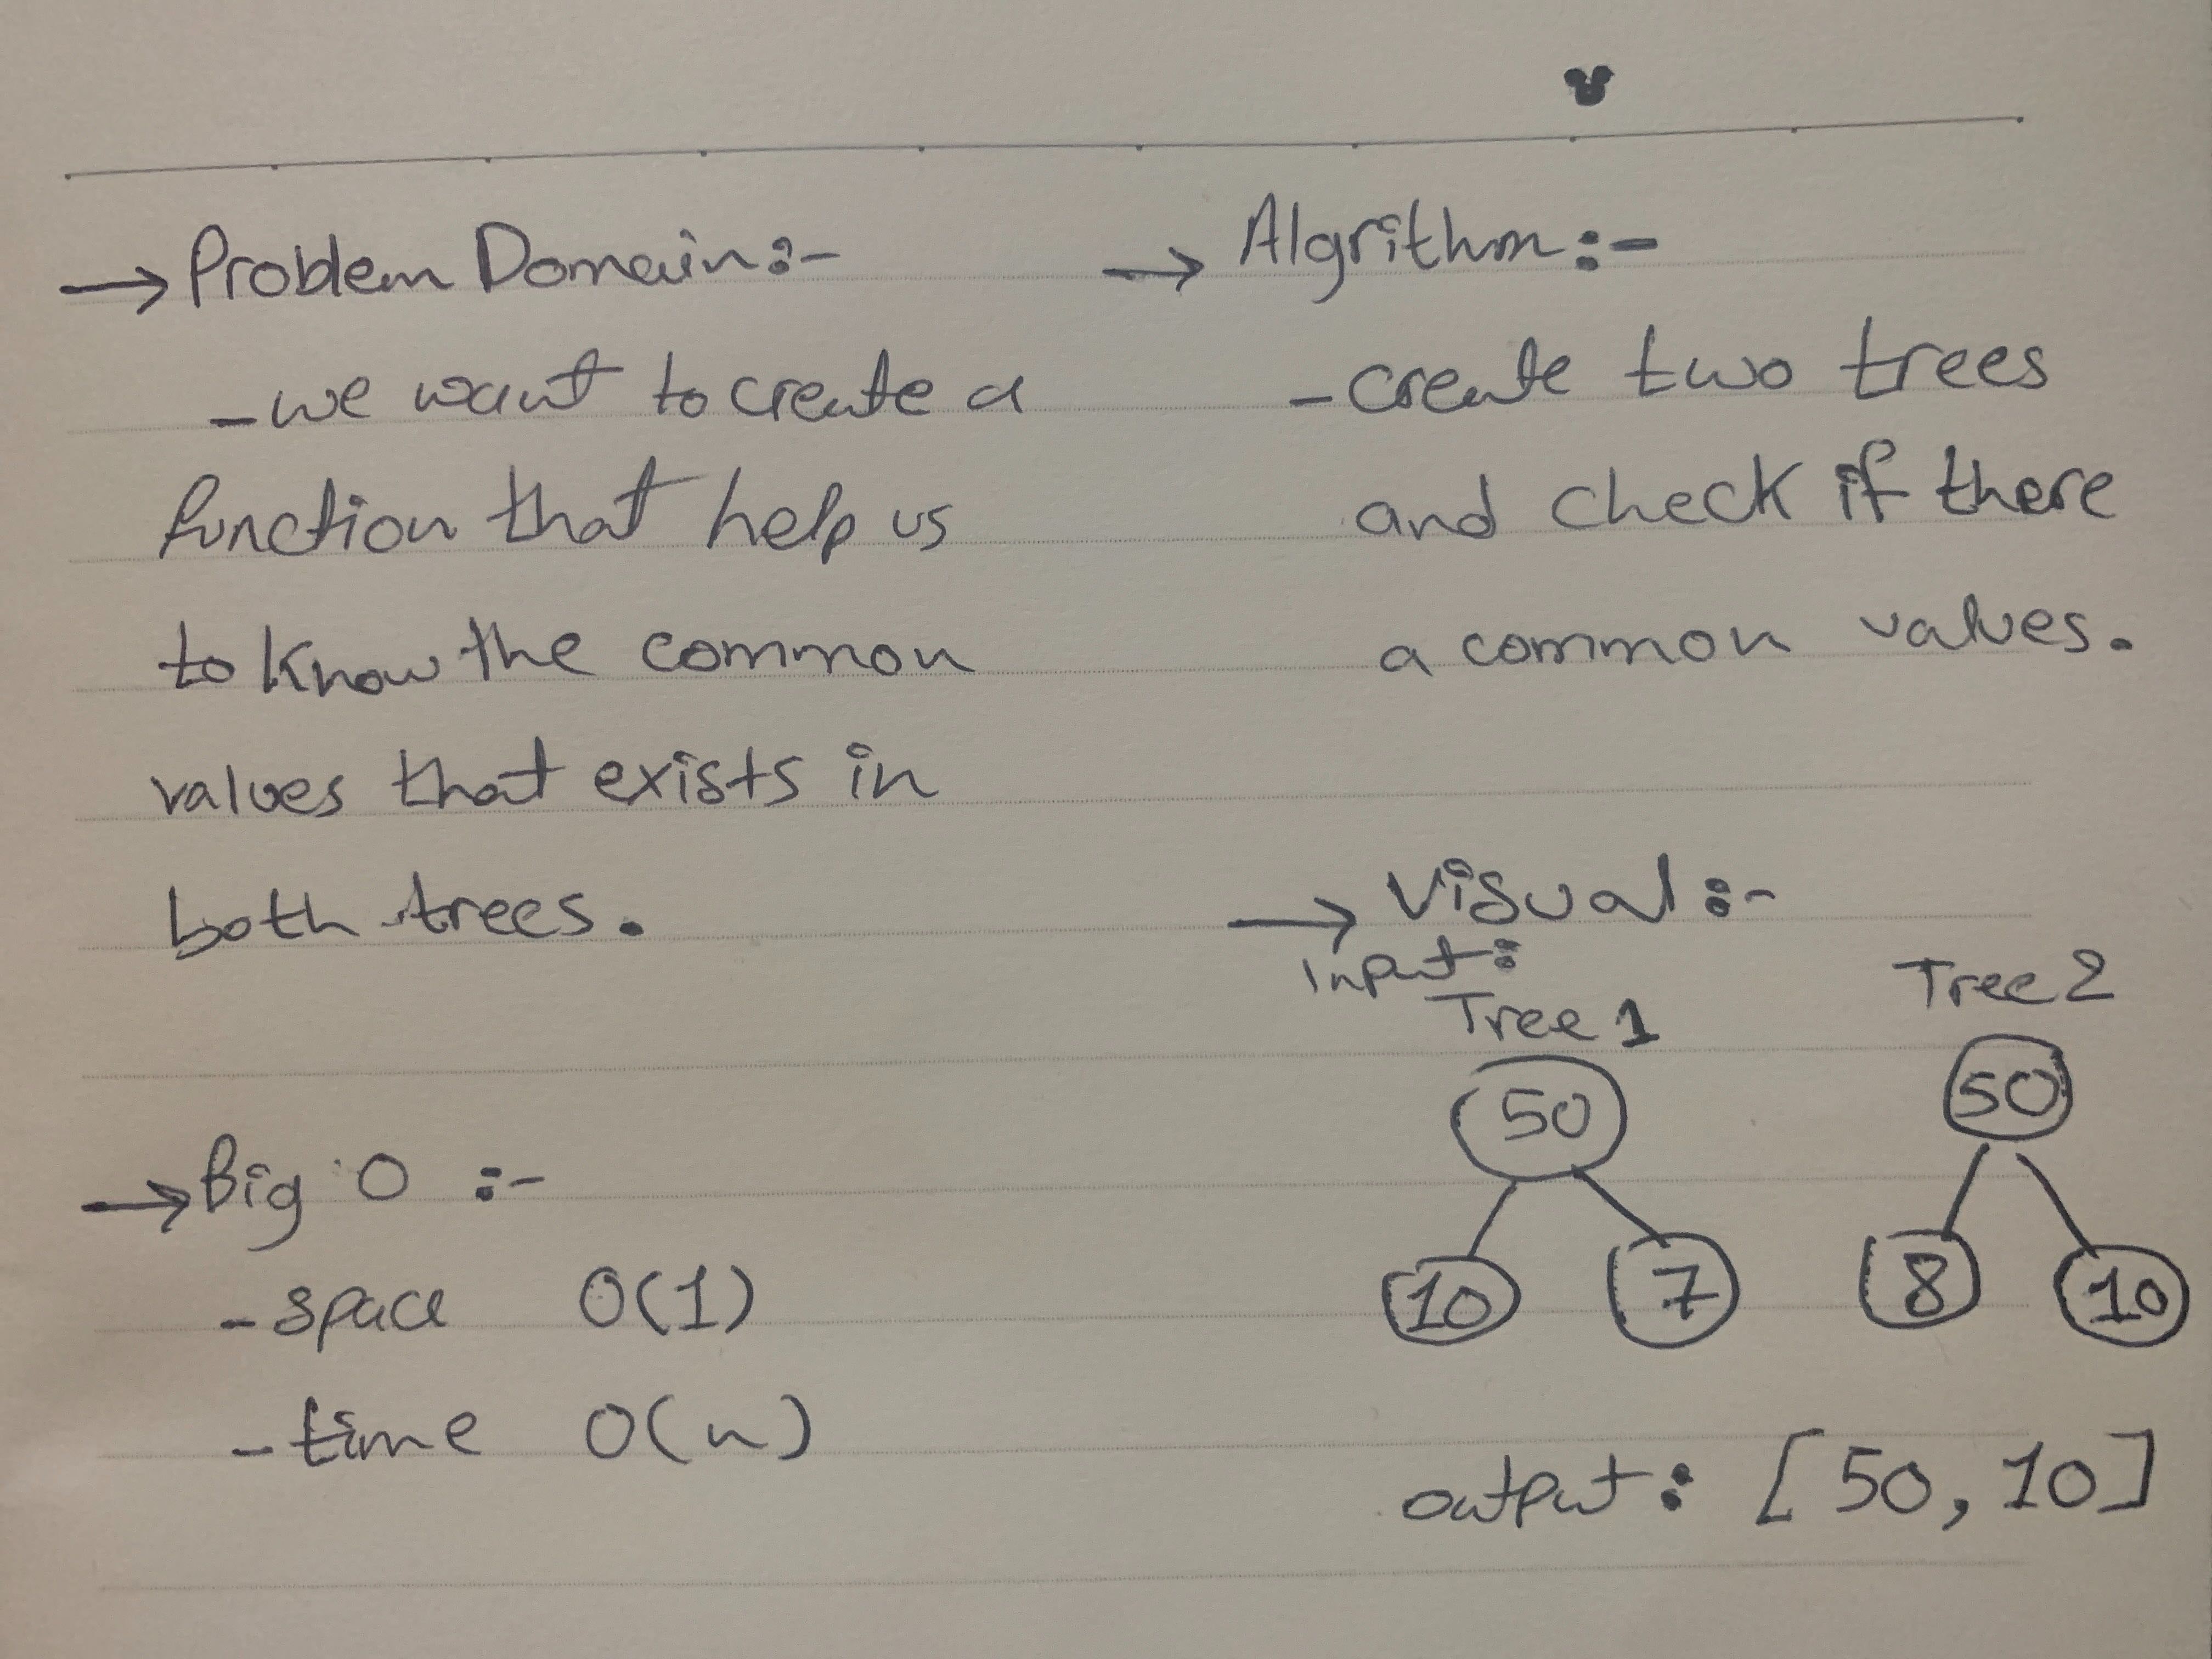 → Problem Domain:-
-we want to create a
function that help us
to know the common
values that exists in
both trees.
→ Big O :-
-space O(1)
-time O(n)
→ Algrithm:-
-create two trees
and check if there
a common values.
→ Visual:-
Input:
Tree 1 Tree 2
50 50
10 7 8 10
output: [50, 10]